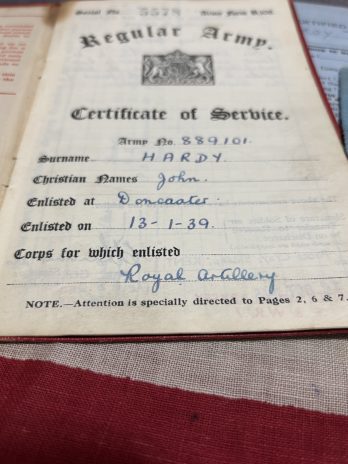 Serial No. 5578 Army Form B.108.
Regular Army.
Certificate of Service.
Army No. 889101.
Surname HARDY.
Christian Names John.
Enlisted at Doncaster.
Enlisted on 13-1-39.
Corps for which enlisted
Royal Artillery
NOTE.—Attention is specially directed to Pages 2, 6 & 7.